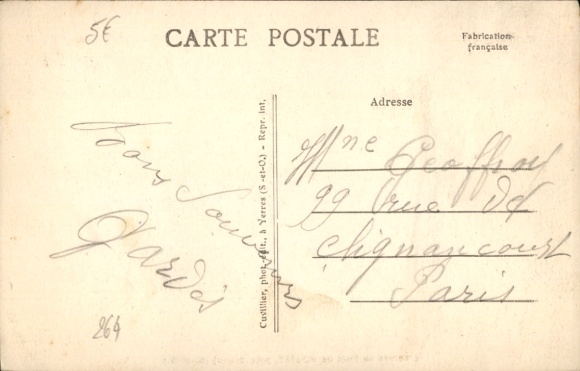 5€
CARTE POSTALE
Fabrication
française
Adresse
Bons Souvenirs
Gardés
264
Cuvillier, phot.-édit., à Yerres (S-et-O.) — Repr. int.
Mme Geoffroy
99 rue de
Clignancourt
Paris